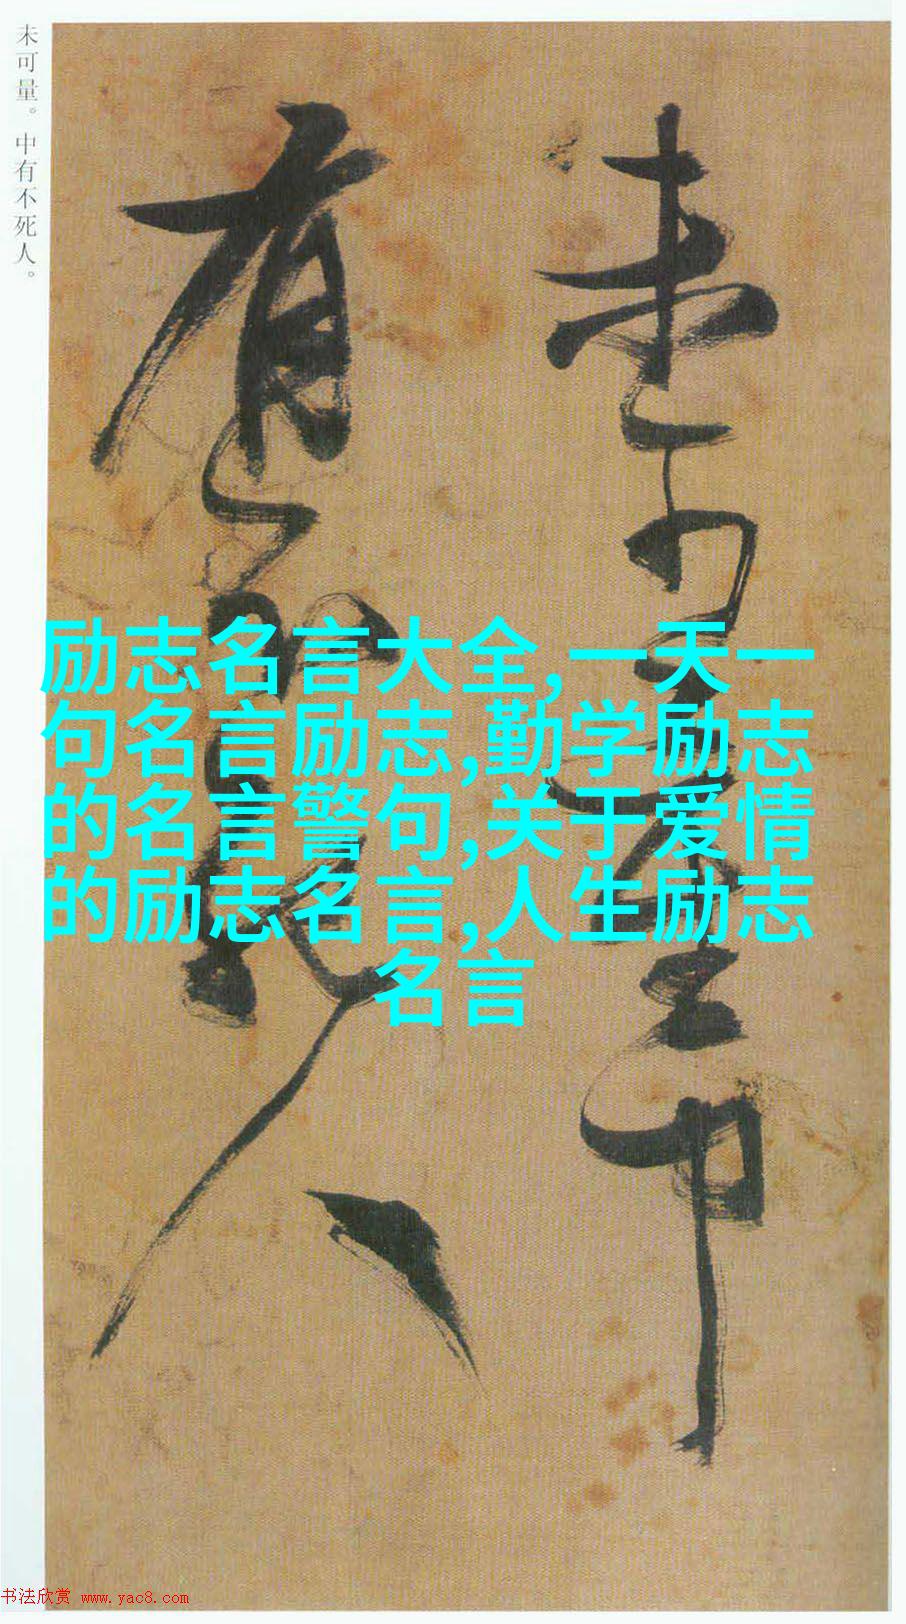 未可量。中有不死人。
未可量。中
有不死人
励志名言大全,一天一
句名言励志,勤学励志
的名言警句,关于爱情
的励志名言,人生励志
名言
书法欣赏 www.yac8.com